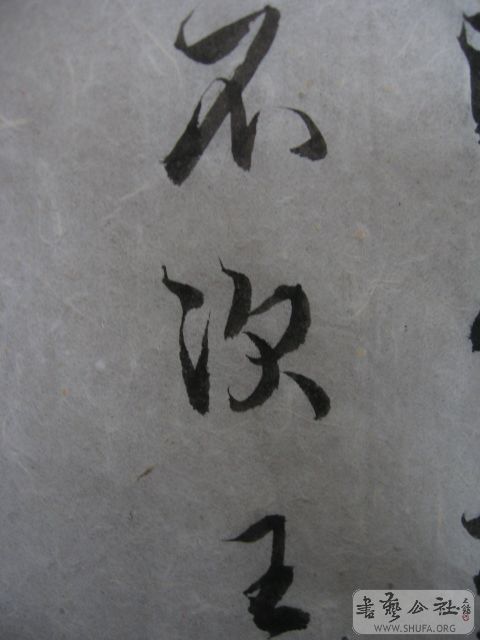 不次王
書藝公社
WWW.SHUFA.ORG